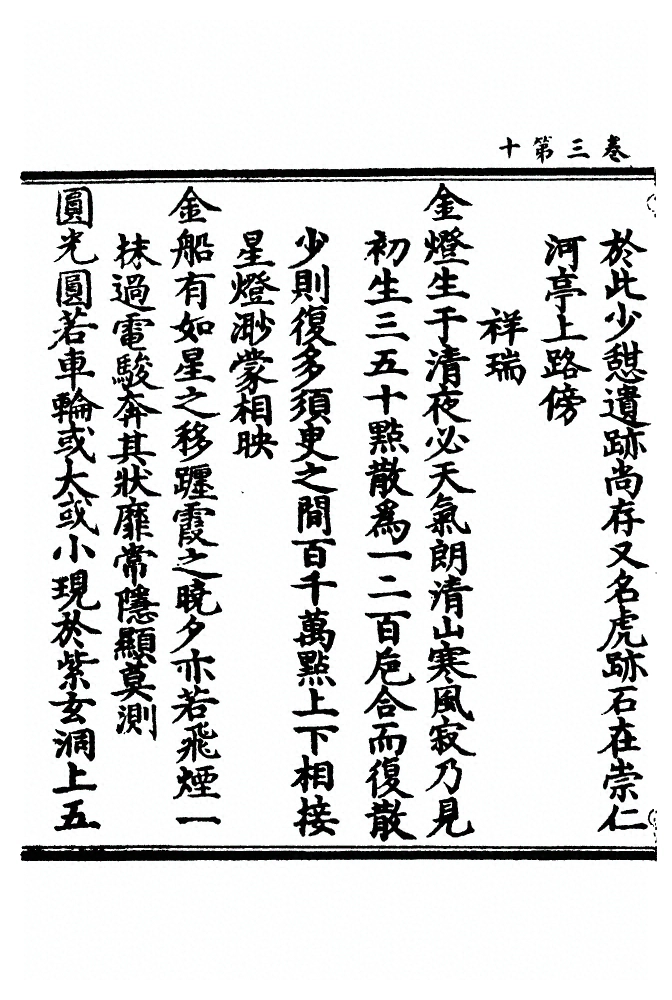 卷三第十
於此少憇遺跡尚存又名虎跡石在崇仁
河亭上路傍
祥瑞
金燈生于清夜必天氣朗清山寒風寂乃見
初生三五十點散爲一二百巵合而復散
少則復多須臾之間百千萬點上下相接
星燈渺蒙相映
金船有如星之移躔霞之曉夕亦若飛煙一
抹過電駿奔其狀靡常隱顯莫測
圓光圓若車輪或大或小現於紫玄洞上五